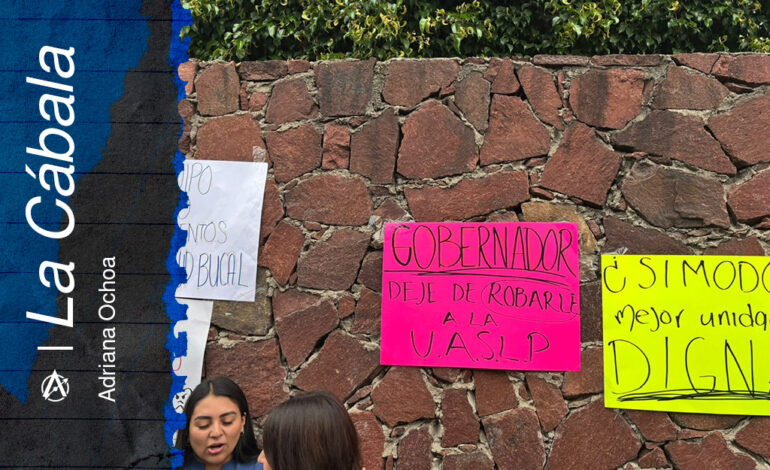 La Cábala
Adriana Ochoa
BUCAL
GOBERNADOR
DEJE DE ROBARLE
A LA
U.A.S.L.P
¿SI MODO
mejor unida
DIGN